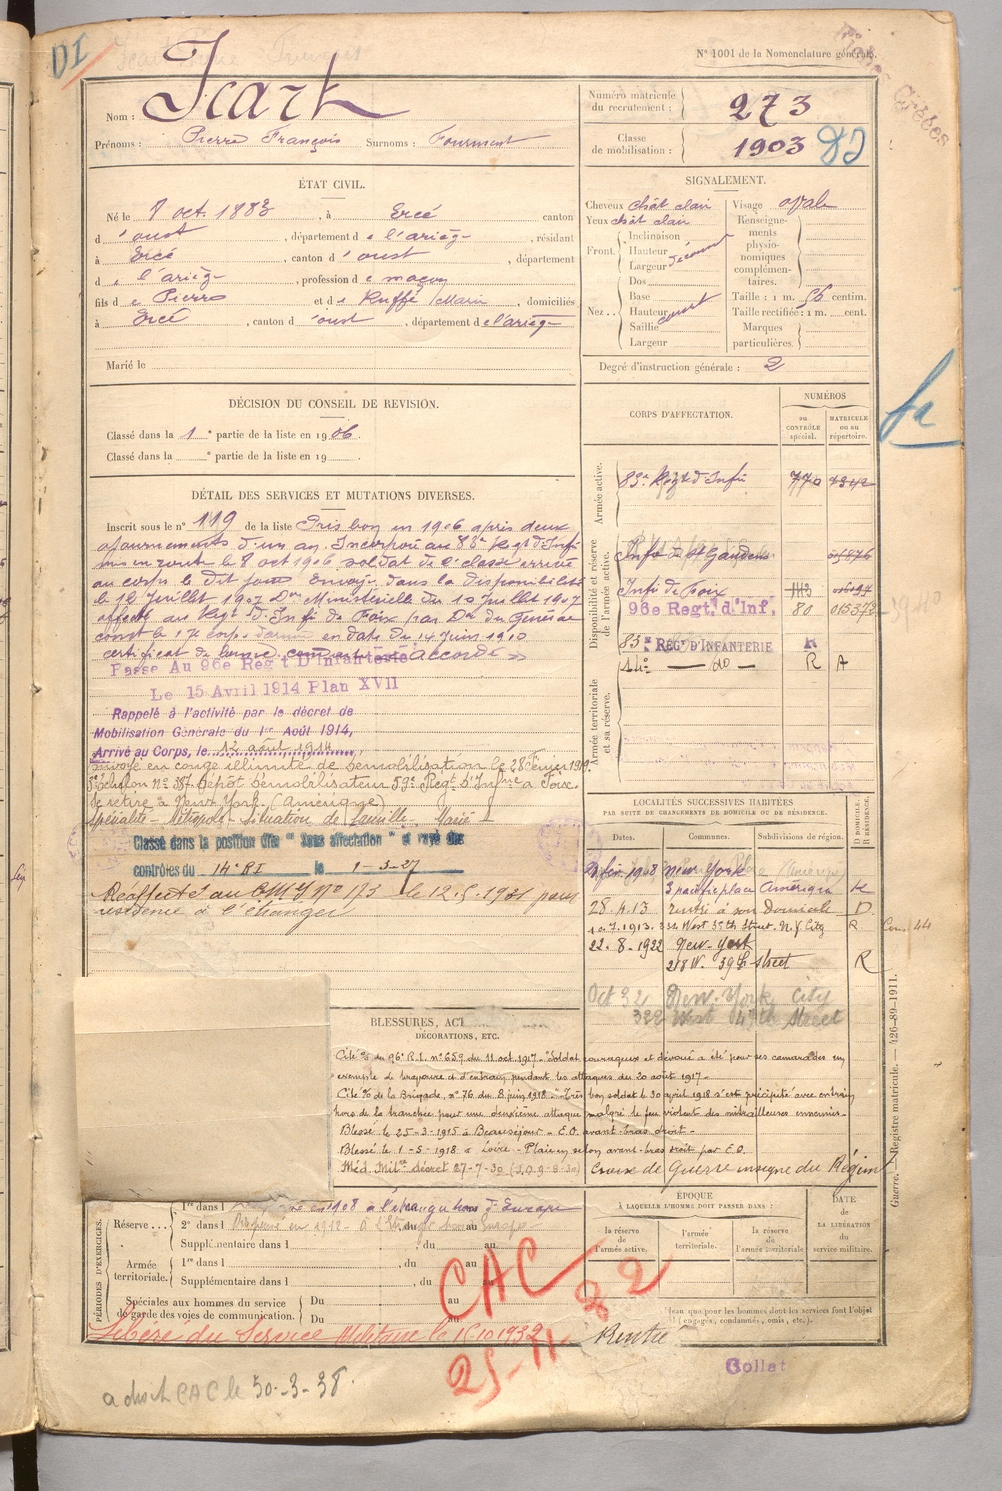 DI
N° 1001 de la Nomenclature générale.
Nom : Icart
Prénoms : Pierre François Surnoms : Fourment
Numéro matricule du recrutement : 273
Classe de mobilisation : 1903
ÉTAT CIVIL.
Né le 8 oct. 1883, à Ercé canton
d'oust, département de l'ariège, résidant
à Ercé, canton d'oust, département
de l'ariège, profession de maçon
fils de Pierre et de Ruffé Marie, domiciliés
à Ercé, canton d'oust, département de l'ariège
Marié le
SIGNALEMENT.
Cheveux chât clair Visage ovale
Yeux chât clair Renseignements physionomiques complémentaires.
Front. Inclinaison
Hauteur
Largeur
Nez. Dos
Base
Hauteur
Saillie
Largeur
Taille : 1 m. 56 centim.
Taille rectifiée : 1 m. cent.
Marques particulières.
Degré d'instruction générale : 2
DÉCISION DU CONSEIL DE REVISION.
Classé dans la 1e partie de la liste en 1906.
Classé dans la e partie de la liste en 19
DÉTAIL DES SERVICES ET MUTATIONS DIVERSES.
Inscrit sous le n° 119 de la liste Pris bon en 1906 après deux
ajournements d'un an. Incorporé au 83e Régt d'Infie
mis en route le 8 oct 1906, soldat de 2e classe arrivé
au corps le dit jour. Envoyé dans la disponibilité
le 12 Juillet 1907 Don Ministérielle du 10 Juillet 1907
affecté au Régt d'Infie de Foix par Don du Général
Comdt le 17e corps d'armée en date du 14 Juin 1910
certificat de bonne conduite Accordé
Passé Au 96e Reg't D'Infanterie
Le 15 Avril 1914 Plan XVII
Rappelé à l'activité par le décret de
Mobilisation Générale du 1er Août 1914,
Arrivé au Corps, le 12 août 1914
Envoyé en congé illimité de démobilisation le 28 Février 1919.
Échelon N° 387 Dépôt démobilisateur 59e Regt d'Infrie à Foix.
Se retire à New York. (Amérique)
Spécialité - Métropole - Situation de famille - Marié
Classé dans la position dite "Sans affectation" et rayé des
contrôles du 14e RI le 1-3-27
Réaffecté au CM I No 173 le 12.5.1931 pour
résidence à l'étranger
CORPS D'AFFECTATION.
NUMÉROS
au contrôle spécial.
matricule ou au répertoire.
Armée active.
83e Régt d'Infie 770
Disponibilité et réserve de l'armée active.
Infie de St Gaudens
Infie de Foix
96e Regt. d'Inf. 80 015372
Armée territoriale et sa réserve.
83e REGt D'INFANTERIE R
14e — do — R A
LOCALITÉS SUCCESSIVES HABITÉES
PAR SUITE DE CHANGEMENTS DE DOMICILE OU DE RÉSIDENCE.
Dates. Communes. Subdivisions de région. D DOMICILE. R RÉSIDENCE.
New York
3 pacific place Amérique
28.4.13 rentré à son Domicile D
1er.7.1913. West 35th Street. N.Y. City R
22.8-1922 New-York
218 W. 39th street R
Oct 32 New.York City
322 West 47th Street
BLESSURES,
DÉCORATIONS, ETC.
Cité % du 96e R.I. n° 659 du 11 oct. 1917. "Soldat courageux et dévoué a été pour ses camarades un
exemple de bravoure et d'entrain pendant les attaques du 20 août 1917.
Cité % de la Brigade, n° 76 du 8 juin 1918. "Très bon soldat le 30 avril 1918 s'est précipité avec entrain
hors de la tranchée pour une deuxième attaque malgré le feu violent des mitrailleuses ennemies.
Blessé le 25-3-1915 à Beauséjour - E.O. avant-bras droit -
Blessé le 1-5-1918 à Loire - avant-bras droit par E.O.
Méd. Milre décret 27-7-30 (J.O. 9-8-30) Croix de Guerre insigne du Régim
PÉRIODES D'EXERCICES.
Réserve. 1re dans l en 1908 à l'étranger hors d'Europe
2e dans l Dispensé en 1912 - à l'étranger hors Europe
Supplémentaire dans l , du au
Armée territoriale. 1re dans l , du au
Supplémentaire dans l , du au
Spéciales aux hommes du service de garde des voies de communication. Du au
Du au
Libéré du Service Militaire le 15.10.1932
ÉPOQUE
À LAQUELLE L'HOMME DOIT PASSER DANS :
la réserve de l'armée active.
l'armée territoriale.
la réserve de l'armée territoriale
DATE DE LA LIBÉRATION du service militaire.
que pour les hommes dont les services font l'objet
(engagés, condamnés, omis, etc.)
CAC
25-11
Rentré
Collat
a droit CAC le 30-3-38.
Guerre. — Registre matricule. — 426-89-1911.